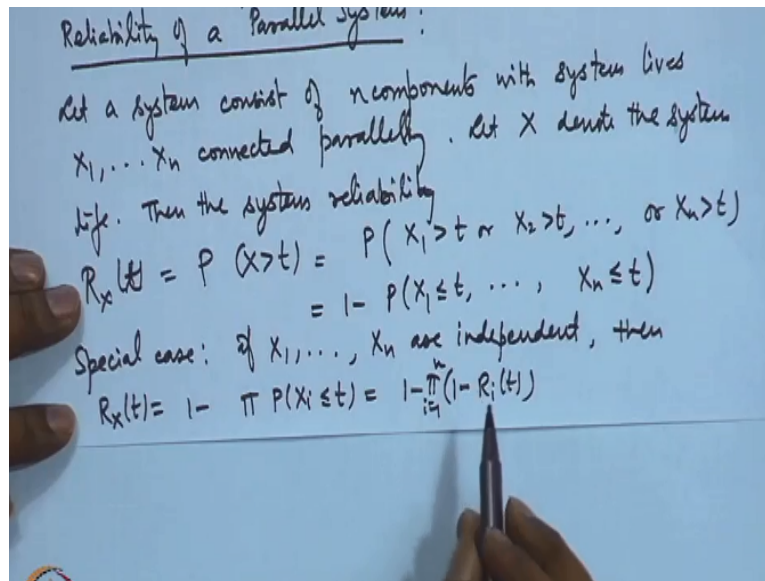 Reliability of a Parallel System:
Let a system consist of n components with system lives
X₁, ... Xₙ connected parallelly. Let X denote the system
life. Then the system reliability
R_X(t) = P(X>t) = P(X₁>t or X₂>t, ..., or Xₙ>t)
= 1- P(X₁≤t, ..., Xₙ≤t)
Special case: if X₁,..., Xₙ are independent, then
R_X(t)= 1- π P(Xᵢ≤t) = 1-π_{i=1}^{n}(1-Rᵢ(t))